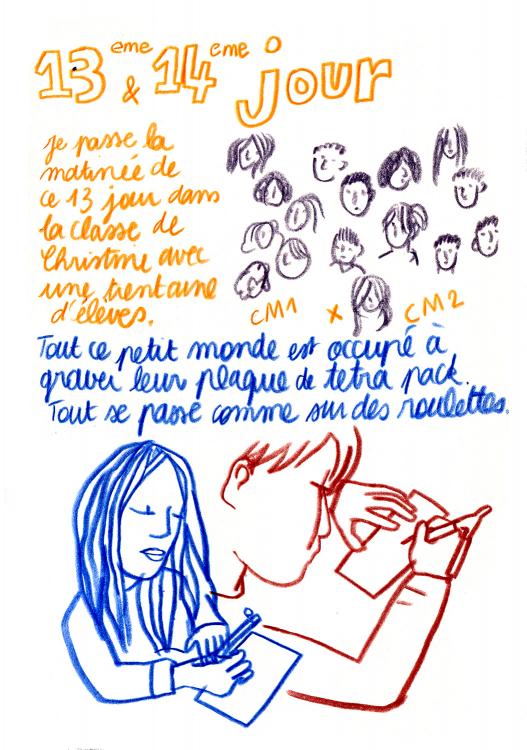 13eme & 14eme jour
je passe la
matinée de
ce 13 jour dans
la classe de
Christine avec
une trentaine
d'élèves.
CM1 x CM2
Tout ce petit monde est occupé à
graver leur plaque de tetra pack.
Tout se passe comme sur des roulettes.